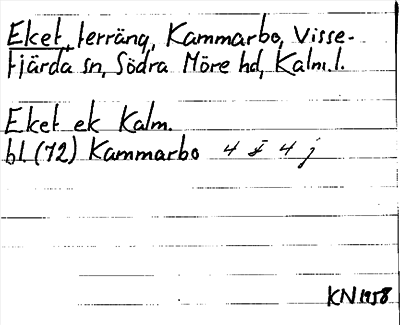 Eket, terräng, Kammarbo, Visse-
fjärda sn, Södra Möre hd, Kalm. l.
Eket ek Kalm.
bl (72) Kammarbo 4 I 4 j
KN 1958